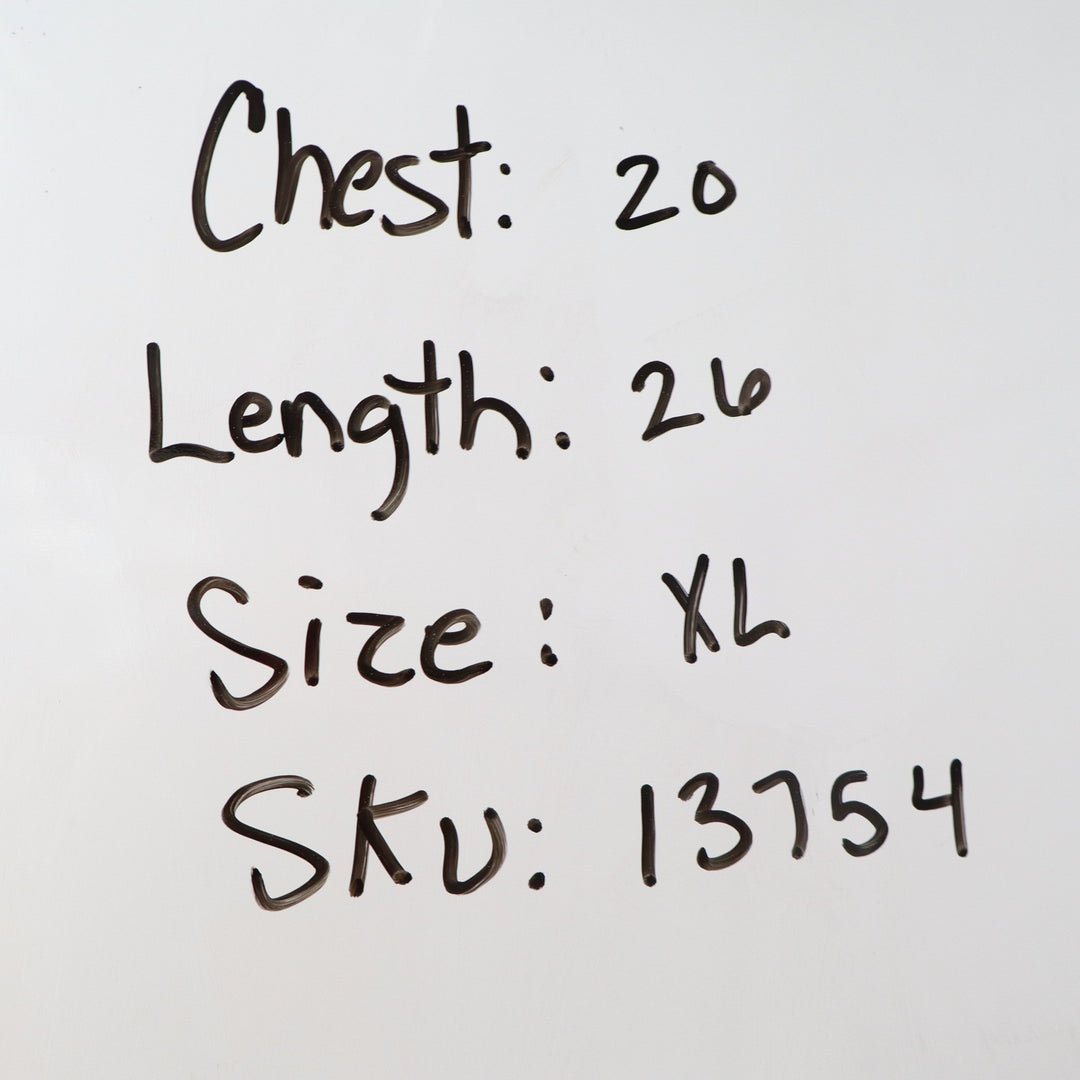 Chest: 20
Length: 26
Size: XL
SKU: 13754